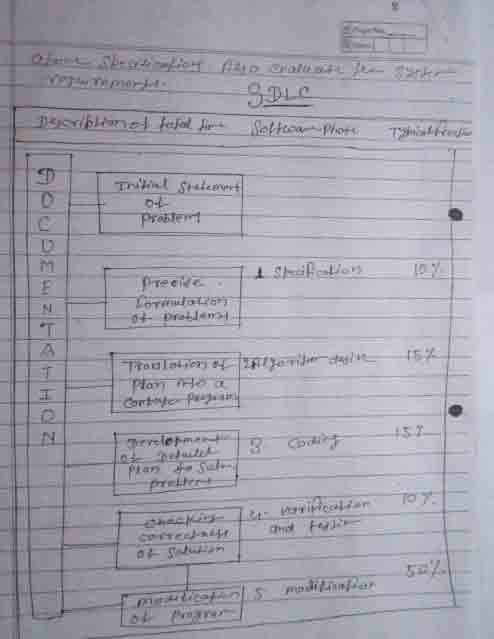 8
above Specification Also evaluate the system
requirements.
SDLC
Description of total time Software Phase Typical
DOCUMENTATION
Initial Statement
of
problem
Precise
formulation
of problems
1 Specification 10%
Translation of
Plan into a
program
2 Algorithm design 15%
Development
of Detailed
Plan to Solve
problem
3 Coding 15%
checking
correctness
of Solution
4 verification
and testin
10%
modification
of Program
5 modification 50%